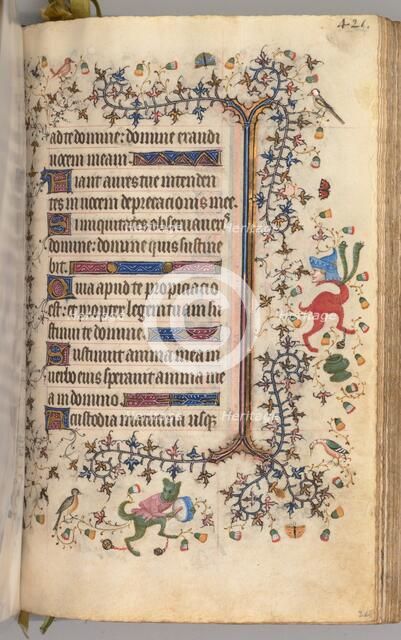 421.
ad te domine: domine exaudi
vocem meam.
Fiant aures tue intenden
tes in vocem deprecationis mee.
Si iniquitates observaveris
domine: domine quis sustine
bit.
Quia apud te propiciacio
est: et propter legem tuam sus
tinui te domine.
Sustinuit anima mea in
verbo eius speravit anima me
a in domino.
A custodia matutina usque